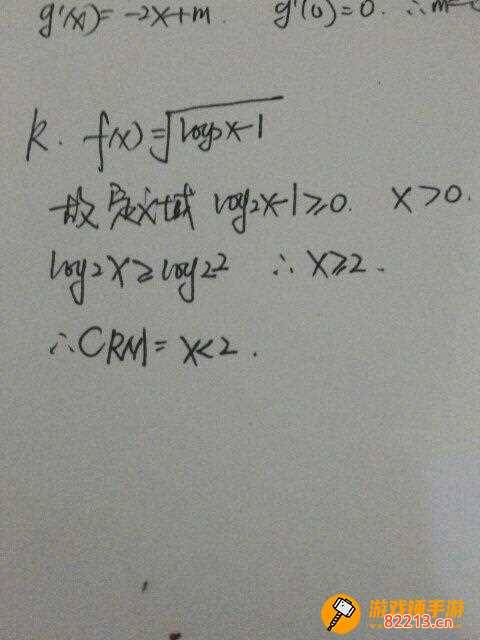 g'(x) = -2x+m. g'(0) = 0. ∴ m=
k. f(x) = √(log₂x-1)
故定义域 log₂x-1≥0. x>0.
log₂x ≥ log₂2 ∴ x≥2.
∴ CRM = x<2.
游戏锤手游
82213.cn